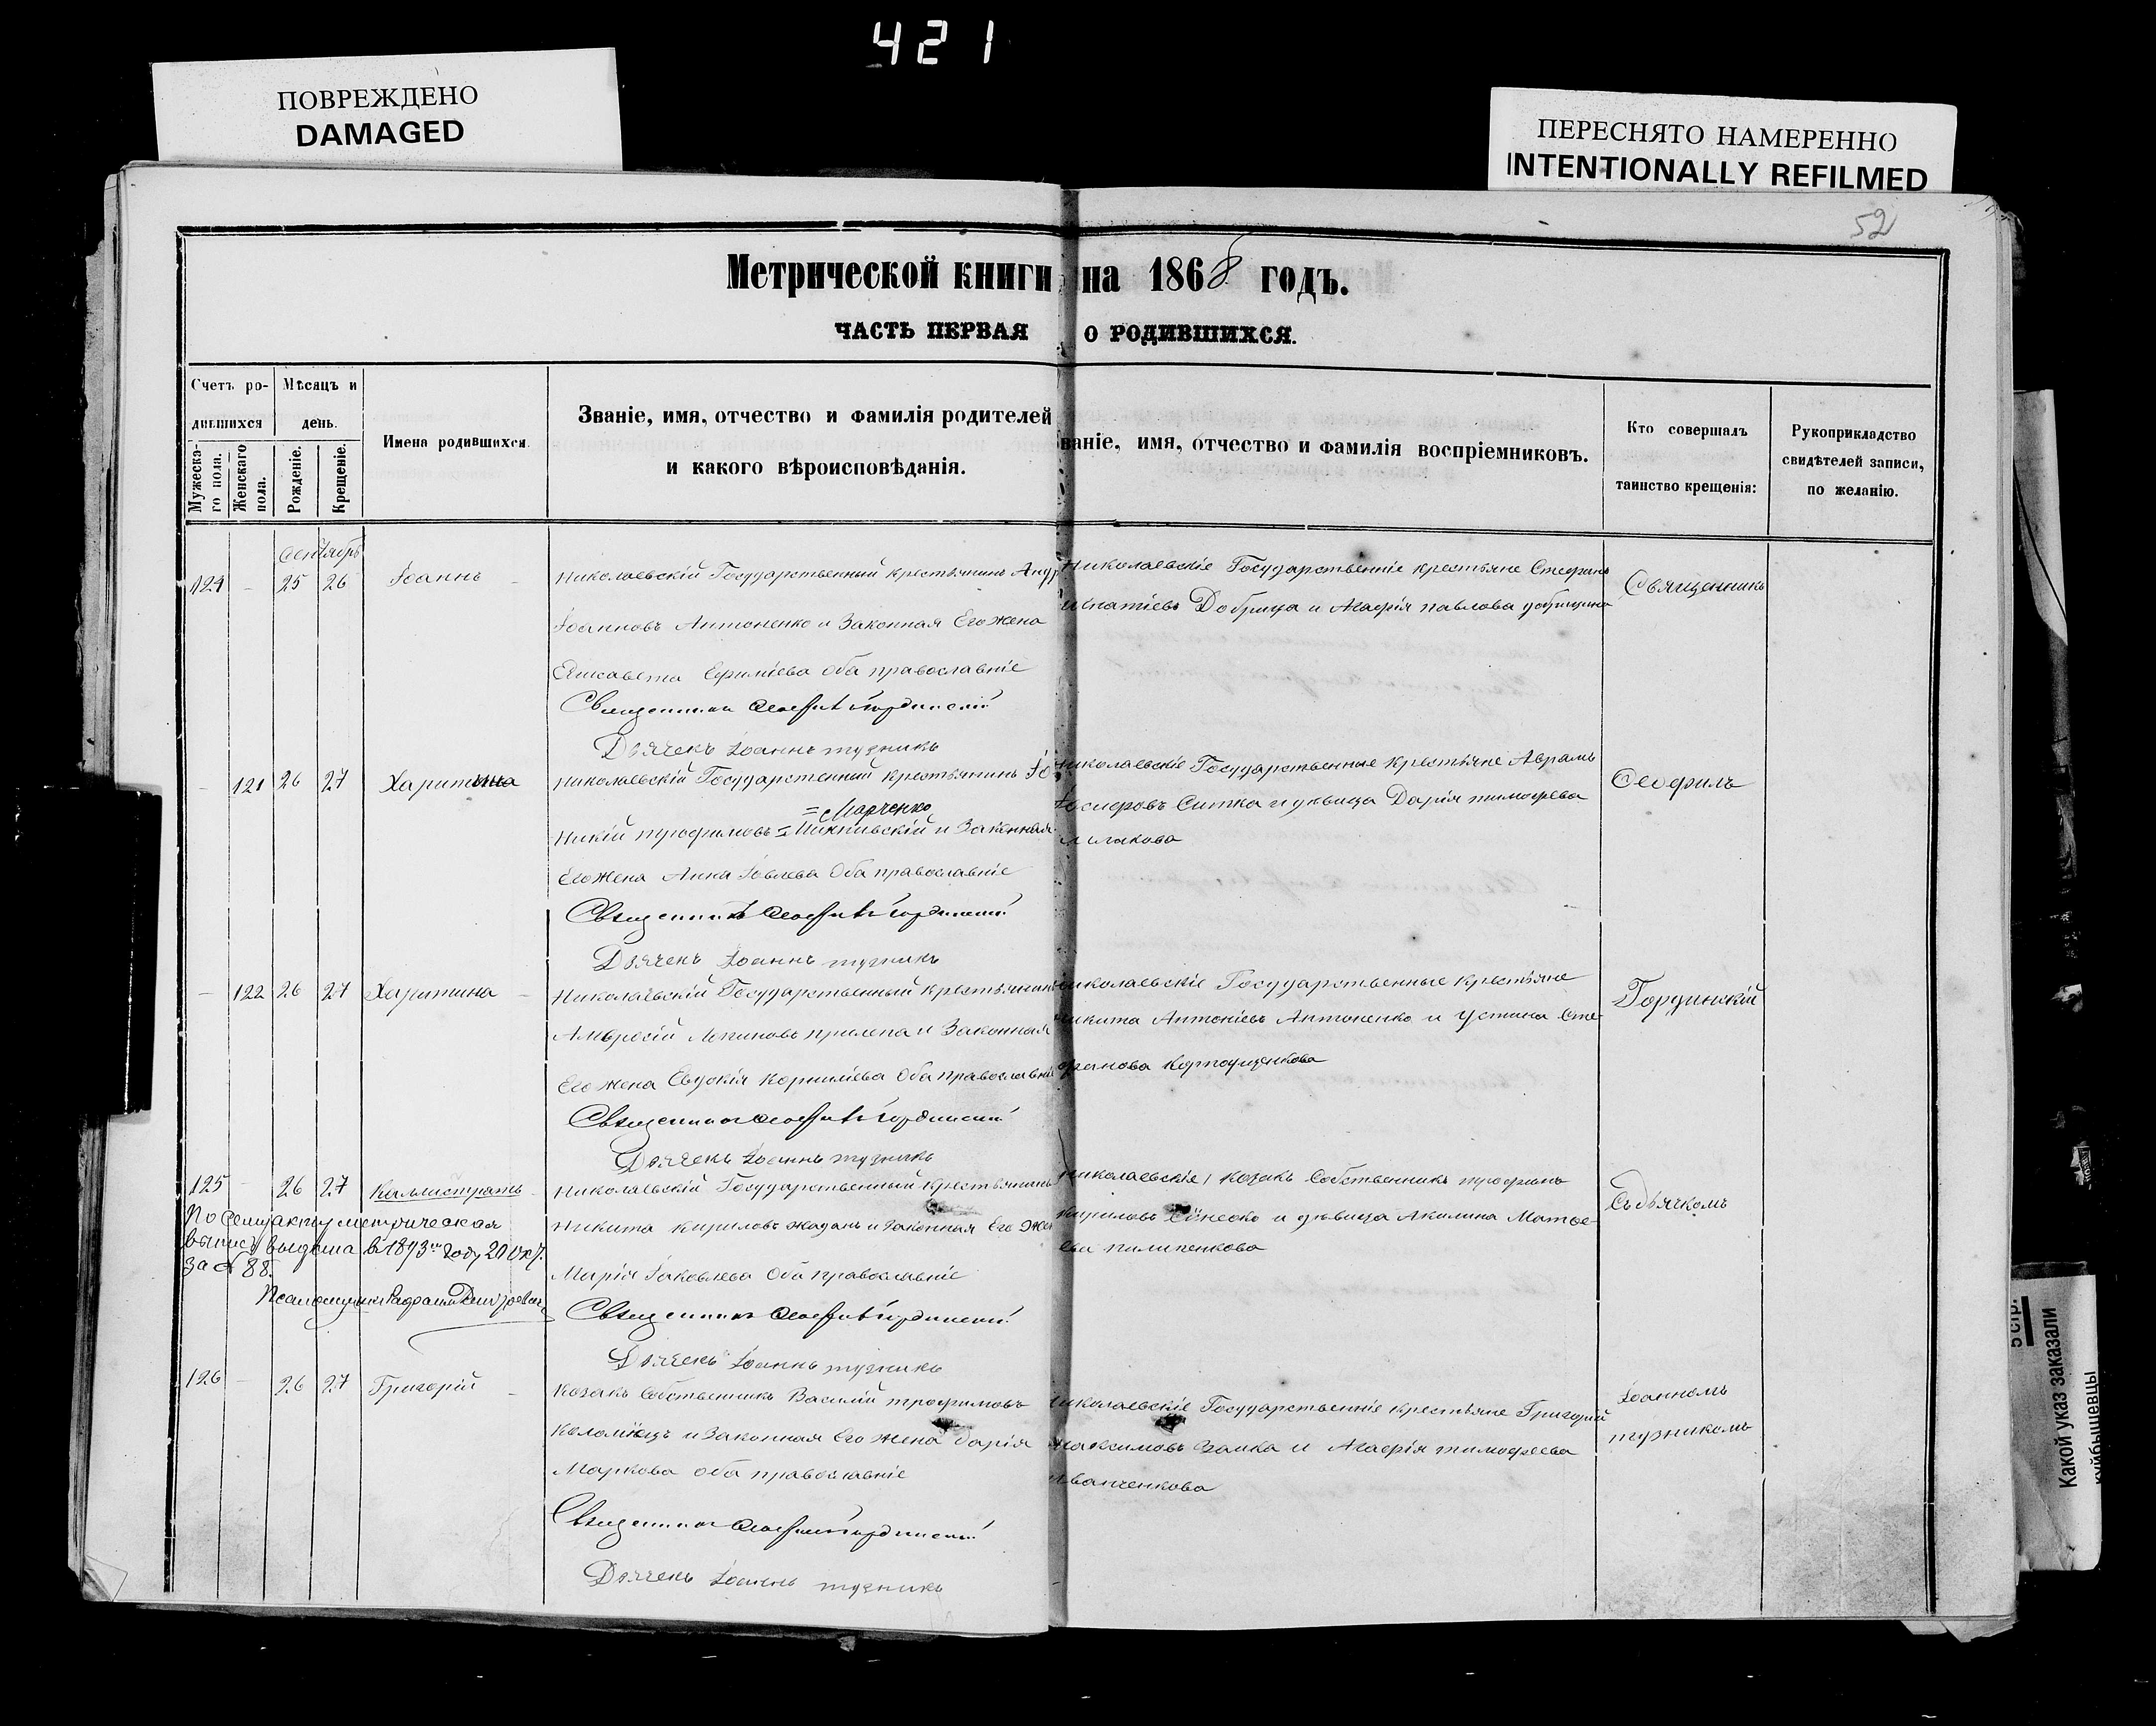 421
ПОВРЕЖДЕНО
DAMAGED
ПЕРЕСНЯТО НАМЕРЕННО
INTENTIONALLY REFILMED
52
Метрической книги на 1868 годъ.
ЧАСТЬ ПЕРВАЯ О РОДИВШИХСЯ.
Счетъ ро-
дившихся
Мужеска-
го пола.
Женскаго
пола.
Мѣсяцъ и
день.
Рожденіе.
Крещеніе.
Имена родившихся.
Званіе, имя, отчество и фамилія родителей
и какого вѣроисповѣданія.
ваніе, имя, отчество и фамилія воспріемниковъ.
Кто совершалъ
таинство крещенія:
Рукоприкладство
свидѣтелей записи,
по желанію.
Сентябрь
124 - 25 26 Іоаннъ
Николаевскій Государственный крестьянинъ Андр
Іоанновъ Антоненко и Законная Его жена
Елисавета Ефиміева Оба православніе
Священникъ Ѳеофилъ Гординскій
Дьячекъ Іоаннъ тузникъ
Николаевскіе Государственніе крестьяне Стефанъ
Игнатіевъ Добрица и Агафія павлова
Священникъ
- 121 26 27 Харитина
Николаевскій Государственный крестьянинъ Іо
= Марченко
никій трофимовъ и Законная
Его жена Анна Іовлева Оба православніе
Священникъ Ѳеофилъ Гординскій
Дьячекъ Іоаннъ тузникъ
николаевскіе Государственные крестьяне Аврамъ
Іосифовъ Ситка и дѣвица Дарія тимофѣева
Ѳеофилъ
- 122 26 27 Харитина
Николаевскій Государственный крестьянинъ
Амвросій прилепа и Законная
Его жена Евдокія Корниліева Оба православніе
Священникъ Ѳеофилъ Гординскій
Дьячекъ Іоаннъ тузникъ
николаевскіе Государственные крестьяне
никита Антоніевъ Антоненко и Устина Сте-
фанова
Гординскій
125 - 26 27 Каллистратъ
Николаевскій Государственный крестьянинъ
Никита кириловъ жадань и Законная Его Жен
Марія Іаковлева Оба православніе
Священникъ Ѳеофилъ Гординскій
Дьячекъ Іоаннъ тузникъ
По сему акту метрическая
выпись выдана в 1893 году 20
за № 88.
Псаломщикъ
Николаевскіе, козакъ Собственникъ трофимъ
кириловъ и дѣвица Акилина Матѳе-
ева пилипенкова
Съ дьячкомъ
126 - 26 27 Григорій
козакъ Собственникъ Василій трофимовъ
Коломіецъ и Законная Его жена дарія
Маркова оба православніе
Священникъ Ѳеофилъ Гординскій
Дьячекъ Іоаннъ тузникъ
николаевскіе Государственніе крестьяне Григорій
Максимовъ Заика и Агафія тимофеева
иванченкова
Іоанномъ
тузникомъ
5 стр.
Какой указ заказали
куйбышевцы